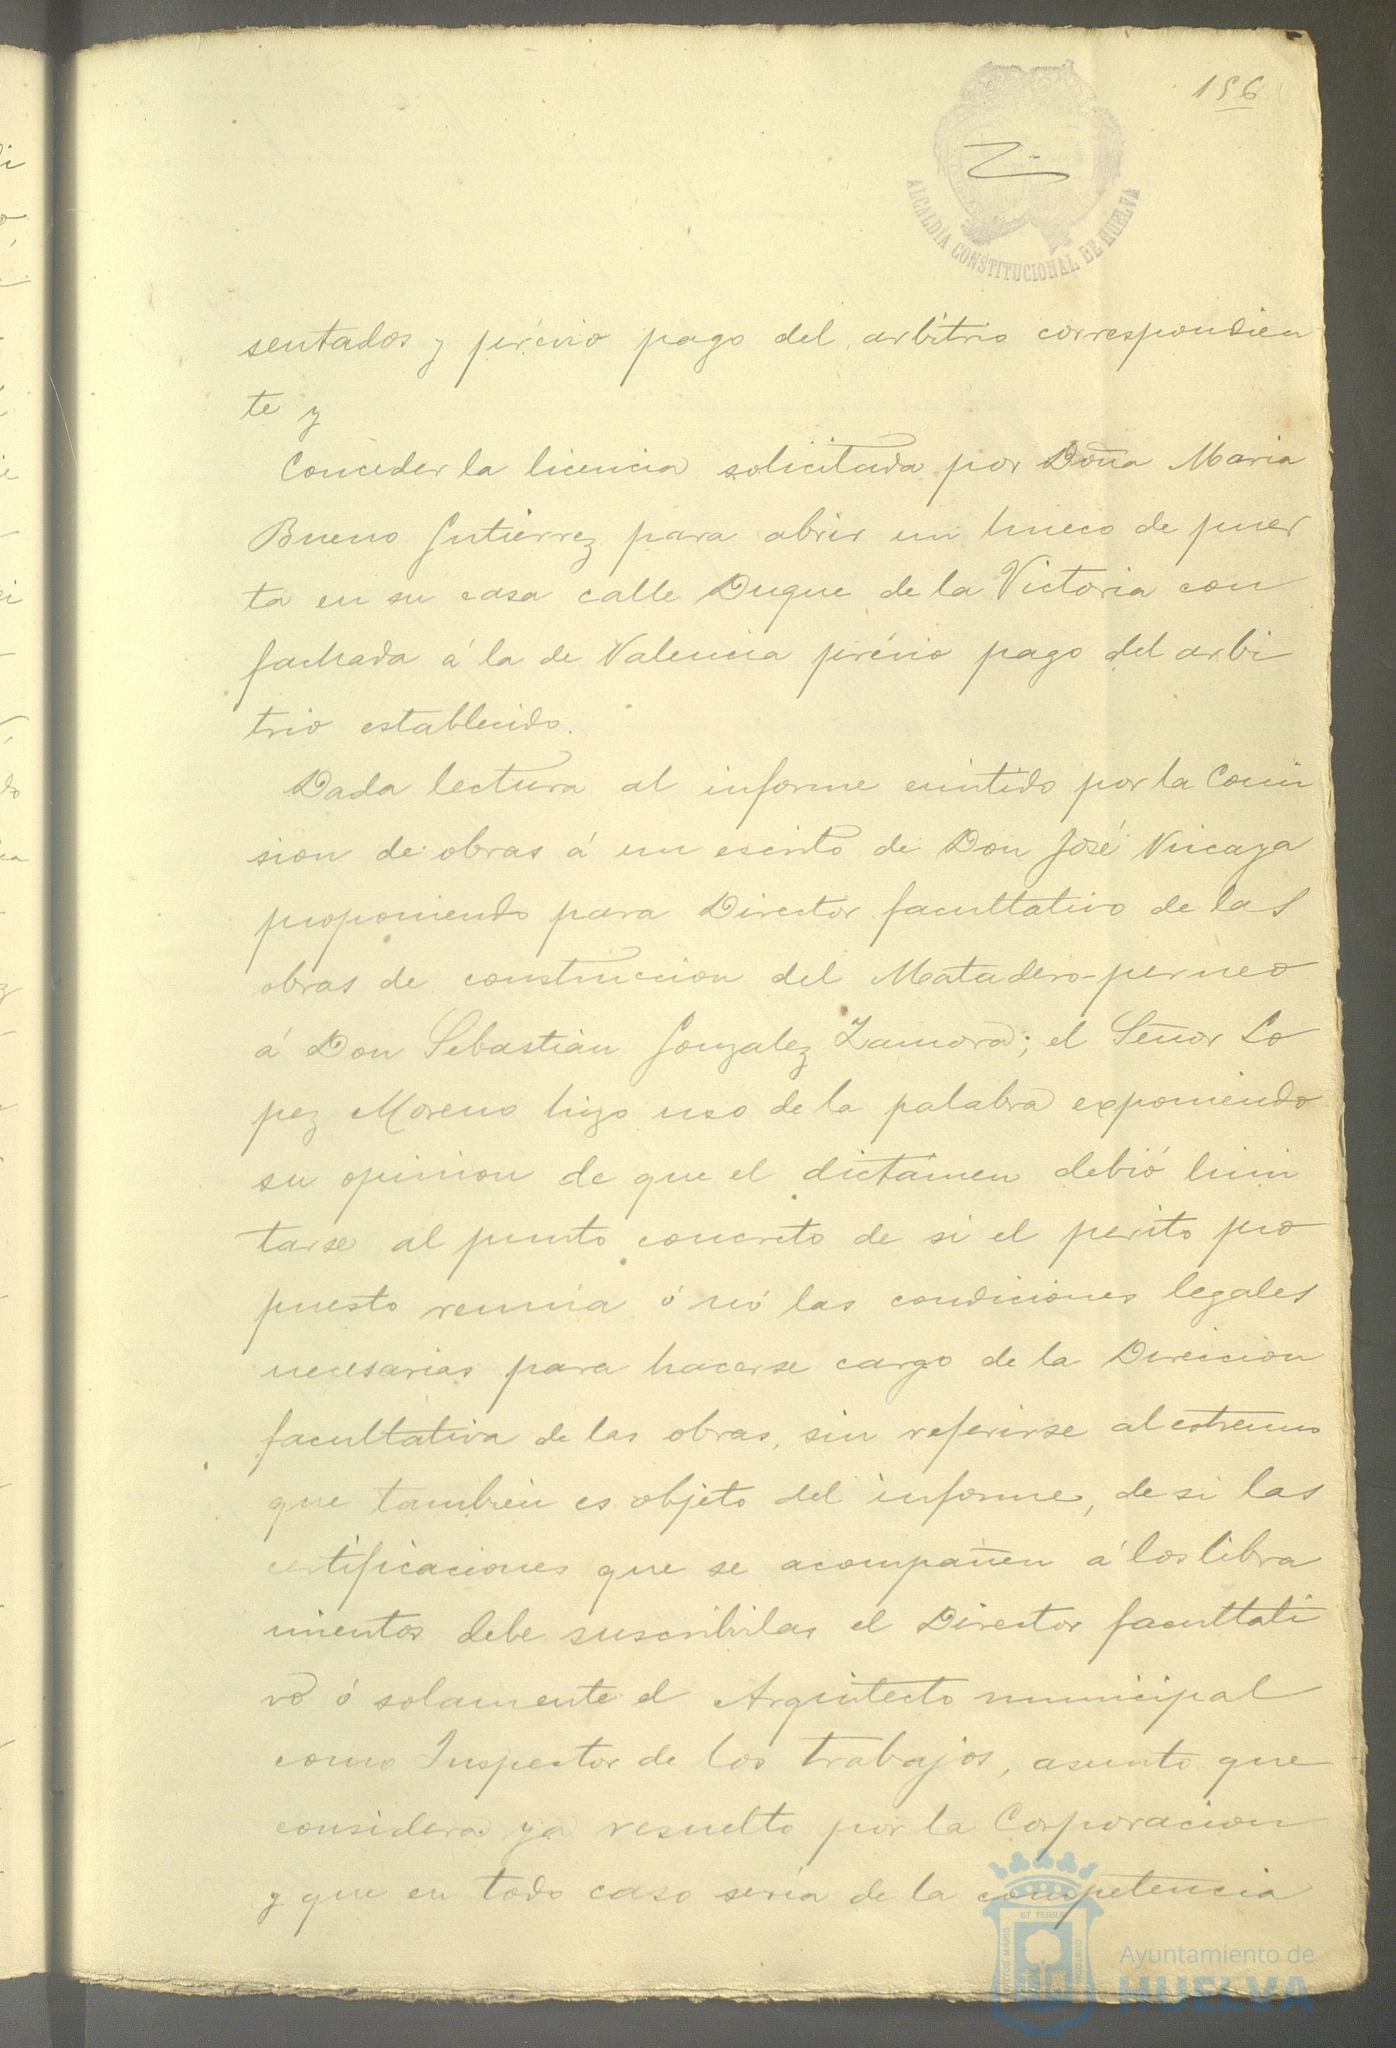 156
ALCALDÍA CONSTITUCIONAL DE HUELVA
sentados y prévio pago del arbitrio correspondien
te y
Conceder la licencia solicitada por Doña Maria
Bueno Gutierrez para abrir un hueco de puer
ta en su casa calle Duque de la Victoria con
fachada á la de Valencia prévio pago del arbi
trio establecido.
Dada lectura al informe emitido por la Comi
sion de obras á un escrito de Don José Vizcaya
proponiendo para Director facultativo de las
obras de construccion del Matadero-perneo
á Don Sebastian Gonzalez Zamora; el Señor Lo
pez Moreno hizo uso de la palabra exponiendo
su opinion de que el dictámen debió limi
tarse al punto concreto de si el perito pro
puesto reunia ó nó las condiciones legales
necesarias para hacerse cargo de la Direccion
facultativa de las obras, sin referirse al estremo
que tambien es objeto del informe, de si las
certificaciones que se acompañen á los libra
mientos debe suscribirlas el Director facultati
vo ó solamente el Arquitecto municipal
como Inspector de los trabajos, asunto que
considera ya resuelto por la Corporacion
y que en todo caso sería de la competencia
Ayuntamiento de
HUELVA